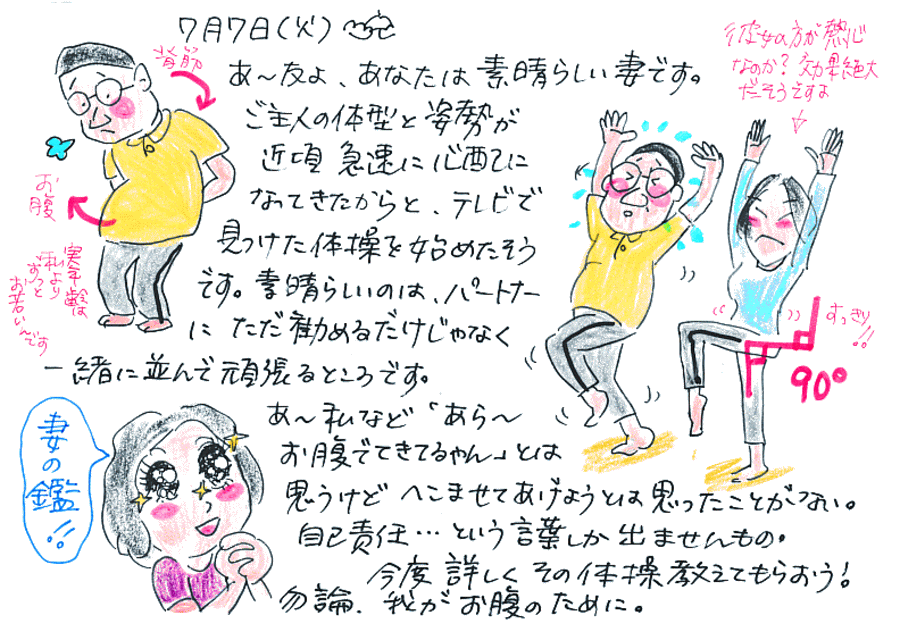 7月7日(火)
背筋
あ〜友よ、あなたは素晴らしい妻です。
ご主人の体型と姿勢が
近頃急速に心配に
なってきたからと、テレビで
見つけた体操を始めたそう
です。素晴らしいのは、パートナー
にただ勧めるだけじゃなく
一緒に並んで頑張るところです。
お腹
実年齢は
私より
ずっと
お若いんです
彼女の方が熱心
なのか?効果絶大
だそうですよ
すっきり!!
90°
妻の鑑!!
あ〜私など「あら〜
お腹でてきてるやん」とは
思うけどへこませてあげようとは思ったことがない。
自己責任…という言葉しか出ませんもの。
今度詳しくその体操教えてもらおう!
勿論、我がお腹のために。